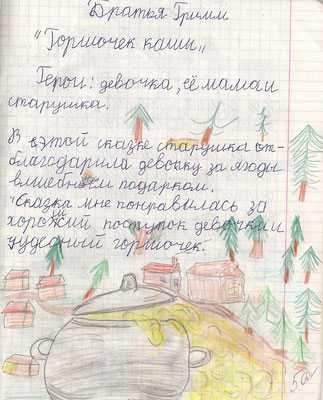 Братья Гримм
"Горшочек каши"
Герои: девочка, её мама и
старушка.
В этой сказке старушка от-
благодарила девочку за ягоды
влшебным подарком.
Сказка мне понравилась за
хороший поступок девочки и
чудесный горшочек.